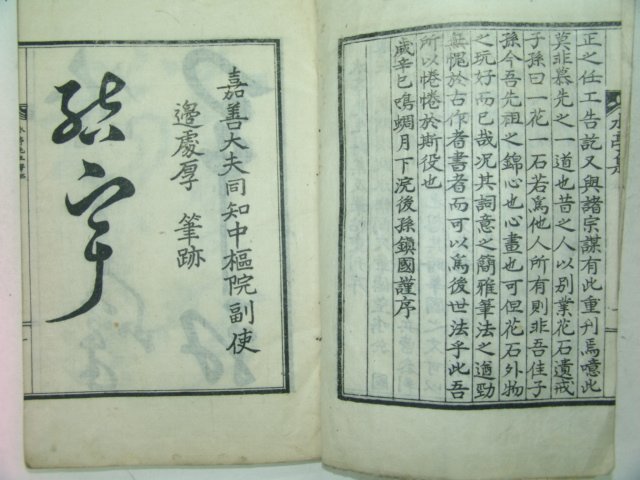 正之任工告訖又與諸宗謀有此重刊焉噫此
莫非慕先之一道也昔之人以別業花石遺戒
子孫曰花一石若爲他人所有則非吾佳子
孫今吾先祖之錦心也心畫也可但花石外物
之玩好而已哉况其詞意之簡雅筆法之遒勁
無愧於古作者書者而可以爲後世法乎此吾
所以惓惓於斯役也
歲辛巳鳴蜩月下浣後孫鎭國謹序
嘉善大夫同知中樞院副使
邊處厚 筆跡